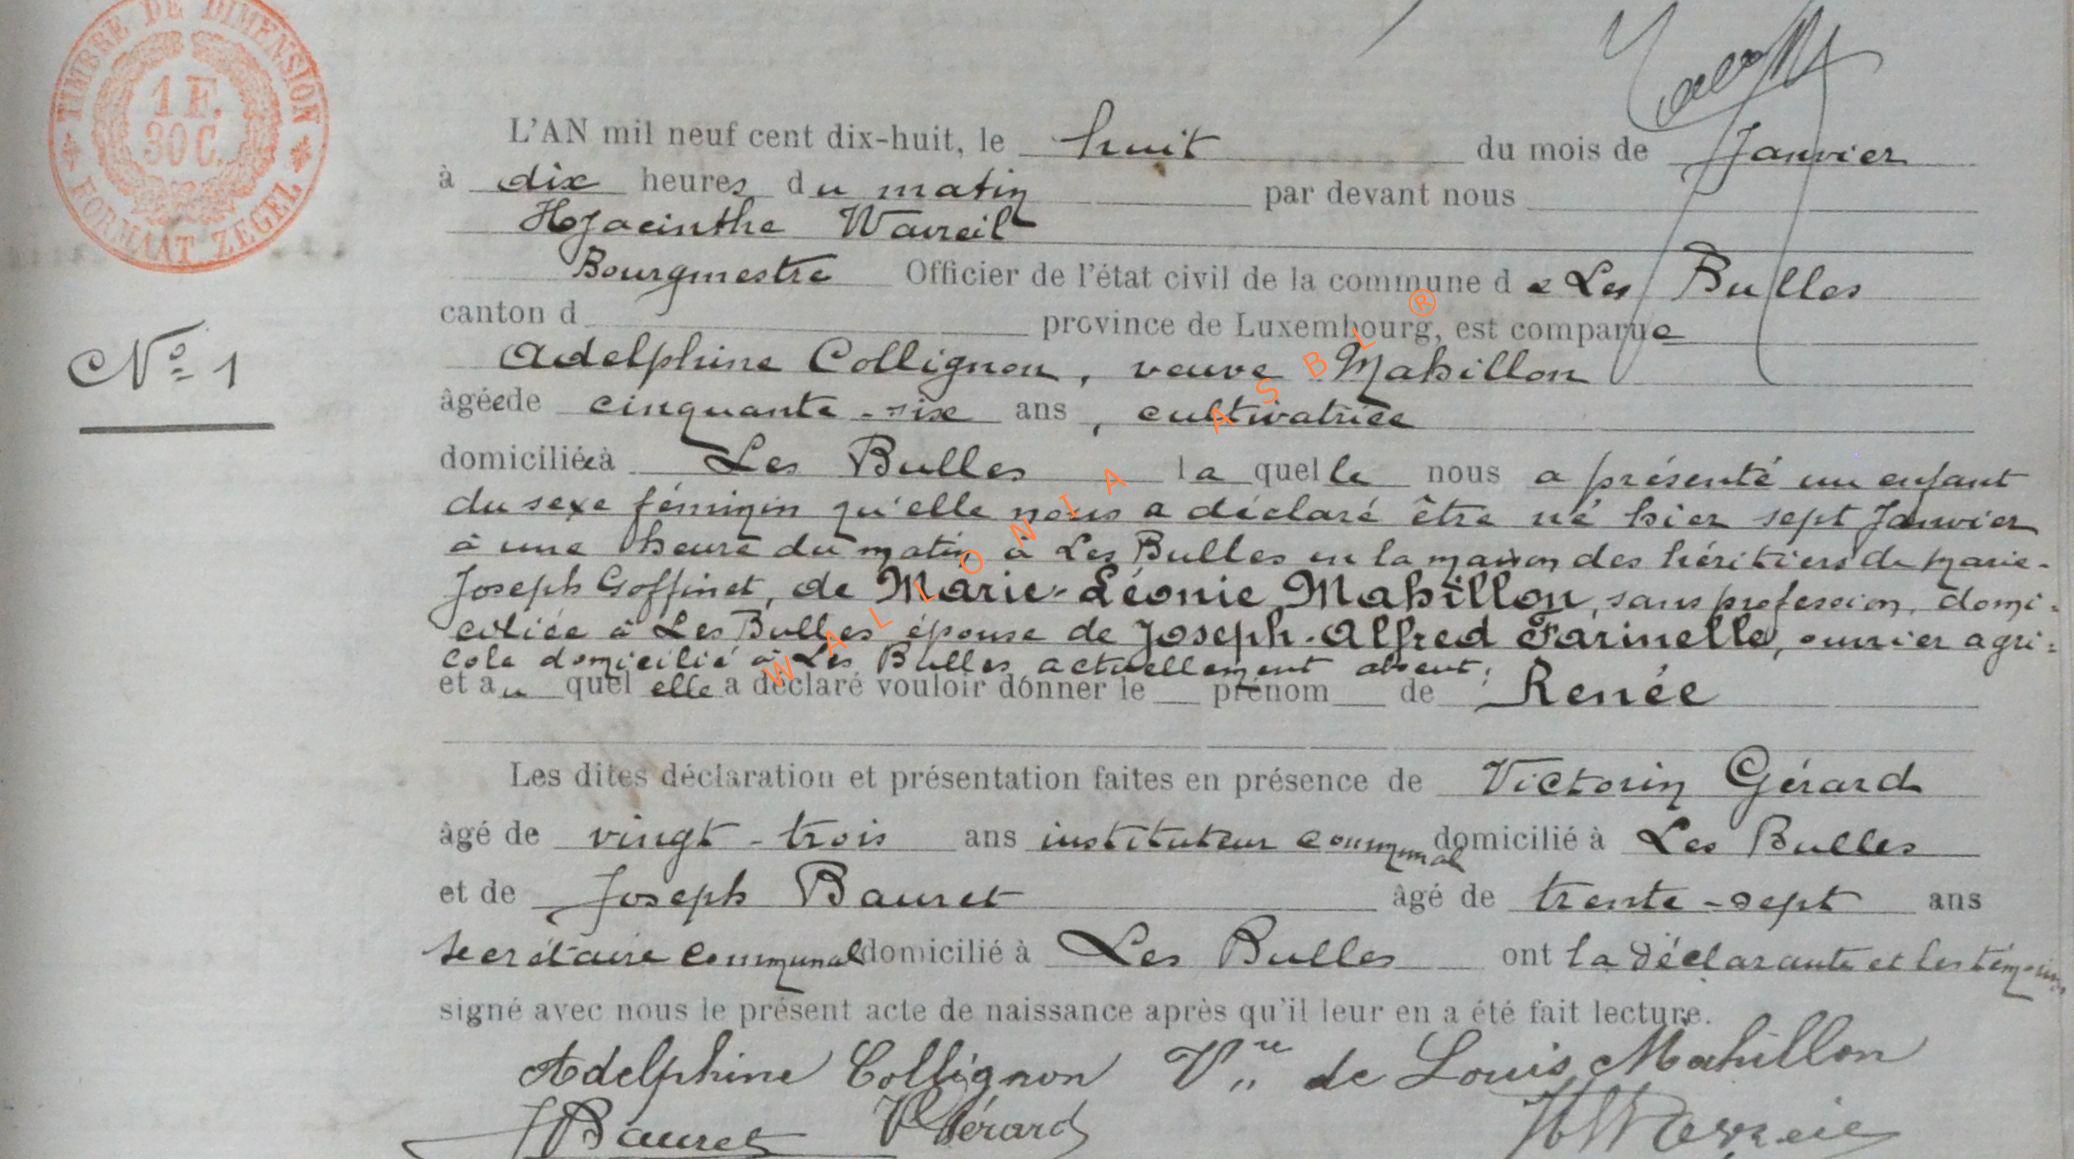 TIMBRE DE DIMENSION
1 F.
30 C.
FORMAAT ZEGEL
L'AN mil neuf cent dix-huit, le huit du mois de Janvier
à dix heures du matin par devant nous
Hyacinthe Wavreil
Bourgmestre Officier de l'état civil de la commune de Les Bulles
canton d province de Luxembourg, est comparue
N° 1
Adelphine Collignon, veuve Mahillon
âgée de cinquante-six ans, cultivatrice
domiciliée à Les Bulles laquelle nous a présenté un enfant
du sexe féminin qu'elle nous a déclaré être né hier sept Janvier
à une heure du matin à Les Bulles en la maison des héritiers de Marie-
Joseph Goffinet, de Marie-Léonie Mahillon, sans profession, domi-
ciliée à Les Bulles épouse de Joseph-Alfred Farinelle, ouvrier agri-
cole domicilié à Les Bulles actuellement absent;
et au quel elle a déclaré vouloir donner le prénom de Renée
Les dites déclaration et présentation faites en présence de Victorin Gérard
âgé de vingt-trois ans instituteur communal domicilié à Les Bulles
et de Joseph Bauret âgé de trente-sept ans
secrétaire communal domicilié à Les Bulles ont la déclarante et les témoins
signé avec nous le présent acte de naissance après qu'il leur en a été fait lecture.
Adelphine Collignon Vve de Louis Mahillon
JBauret VGérard HWavreil
WALLONIA ASBL ®